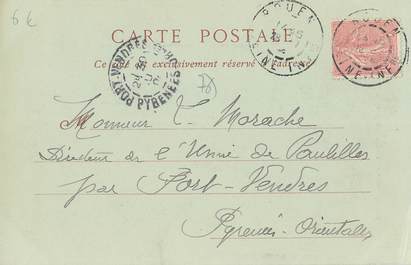 6 €
CARTE POSTALE
Ce côté est exclusivement réservé à l'adresse
ROUEN
ROUEN
PORT-VENDRES
PYRÉNÉES
Monsieur T. Morache
Directeur de l'Usine de Paulilles
par Port-Vendres
Pyrénées-Orientales